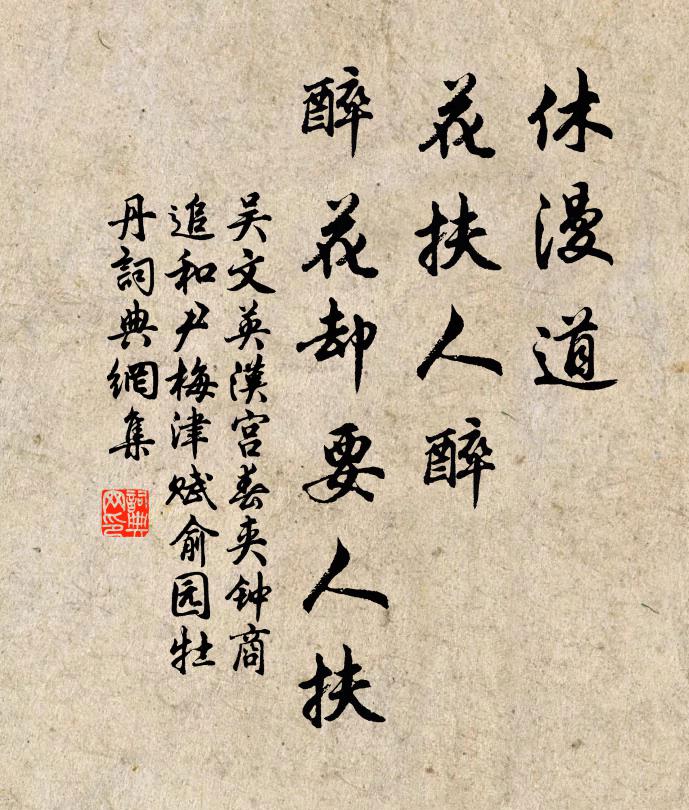 休漫道
花扶人醉
醉花却要人扶
吴文英漢宮春夹钟商
追和尹梅津赋俞园牡
丹詞典網集
詞典网印